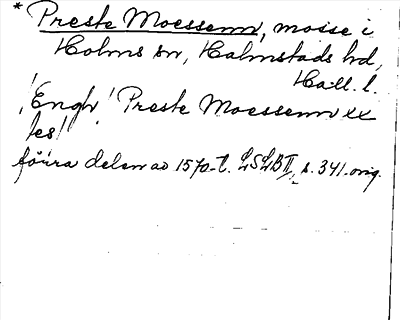 * Preste Moessenn, mosse i
Holms sn, Halmstads hd,
Hall. l.
'Engh' Preste Moessenn xx
tes!
förra delen av 1570-t. LSLB II, s. 341. orig.